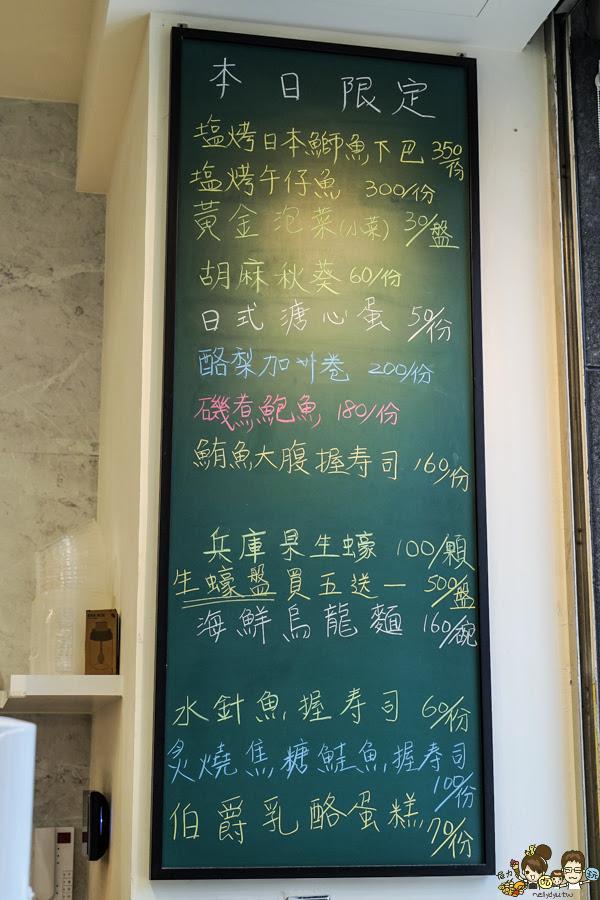 本日限定
塩烤日本鰤魚下巴 350/份
塩烤午仔魚 300/份
黃金泡菜(小菜) 30/盤
胡麻秋葵 60/份
日式溏心蛋 50/份
酪梨加州卷 200/份
磯煮鮑魚 180/份
鮪魚大腹握寿司 160/份
兵庫県生蠔 100/顆
生蠔盤買五送一 500/盤
海鮮烏龍麵 160/碗
水針魚握寿司 60/份
炙燒焦糖鮭魚握寿司
100/份
伯爵乳酪蛋糕 70/份
nellydyu.tw